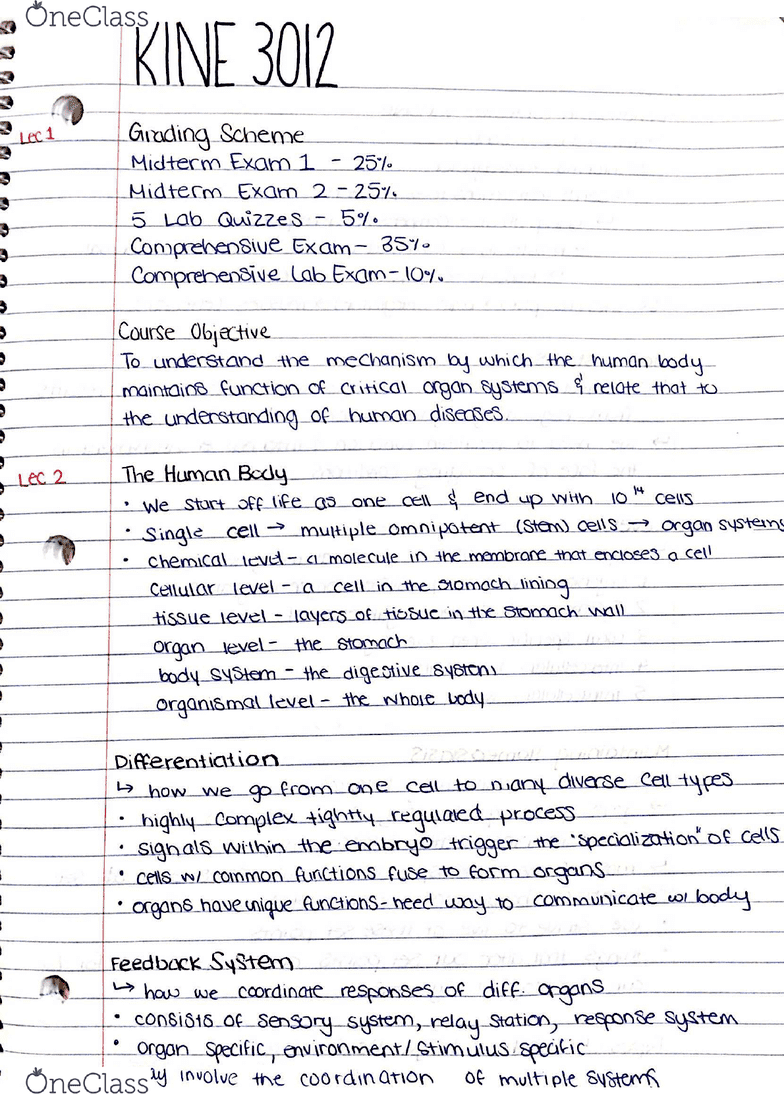 OneClass
KINE 3012
Lec 1
Grading Scheme
Midterm Exam 1 - 25%
Midterm Exam 2 - 25%
5 Lab Quizzes - 5%
Comprehensive Exam - 35%
Comprehensive Lab Exam - 10%
Course Objective
To understand the mechanism by which the human body
maintains function of critical organ systems & relate that to
the understanding of human diseases.
Lec 2
The Human Body
• We start off life as one cell & end up with 10¹⁴ cells
• Single cell → multiple omnipotent (stem) cells → organ systems
• chemical level - a molecule in the membrane that encloses a cell
cellular level - a cell in the stomach lining
tissue level - layers of tissue in the stomach wall
organ level - the stomach
body system - the digestive system
organismal level - the whole body
Differentiation
↳ how we go from one cell to many diverse cell types
• highly complex tightly regulated process
• signals within the embryo trigger the "specialization" of cells
• cells w/ common functions fuse to form organs
• organs have unique functions - need way to communicate w/ body
Feedback System
↳ how we coordinate responses of diff. organs
• consists of sensory system, relay station, response system
• organ specific, environment/stimulus specific
OneClass
involve the coordination of multiple systems